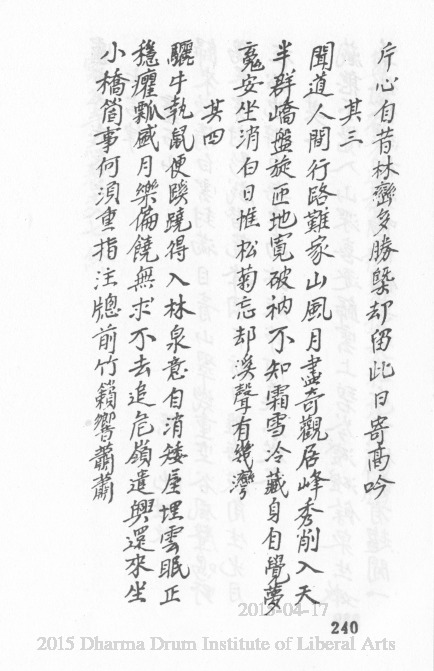 片心自昔林巒多勝槩却留此日寄高吟
其三
聞道人間行路難家山風月盡奇觀居峰秀削入天
半群嶠盤旋匝地寬破衲不知霜雪冷藏身自覺夢
魂安坐消白日惟松菊忘却溪聲有幾灣
其四
驅牛執鼠便蹊蹺得入林泉意自消矮屋埋雲眠正
穩癯瓢盛月樂偏饒無求不去追危嶺遣興還來坐
小橋箇事何須重指注牕前竹籟響蕭蕭
240
2015-04-17
2015 Dharma Drum Institute of Liberal Arts